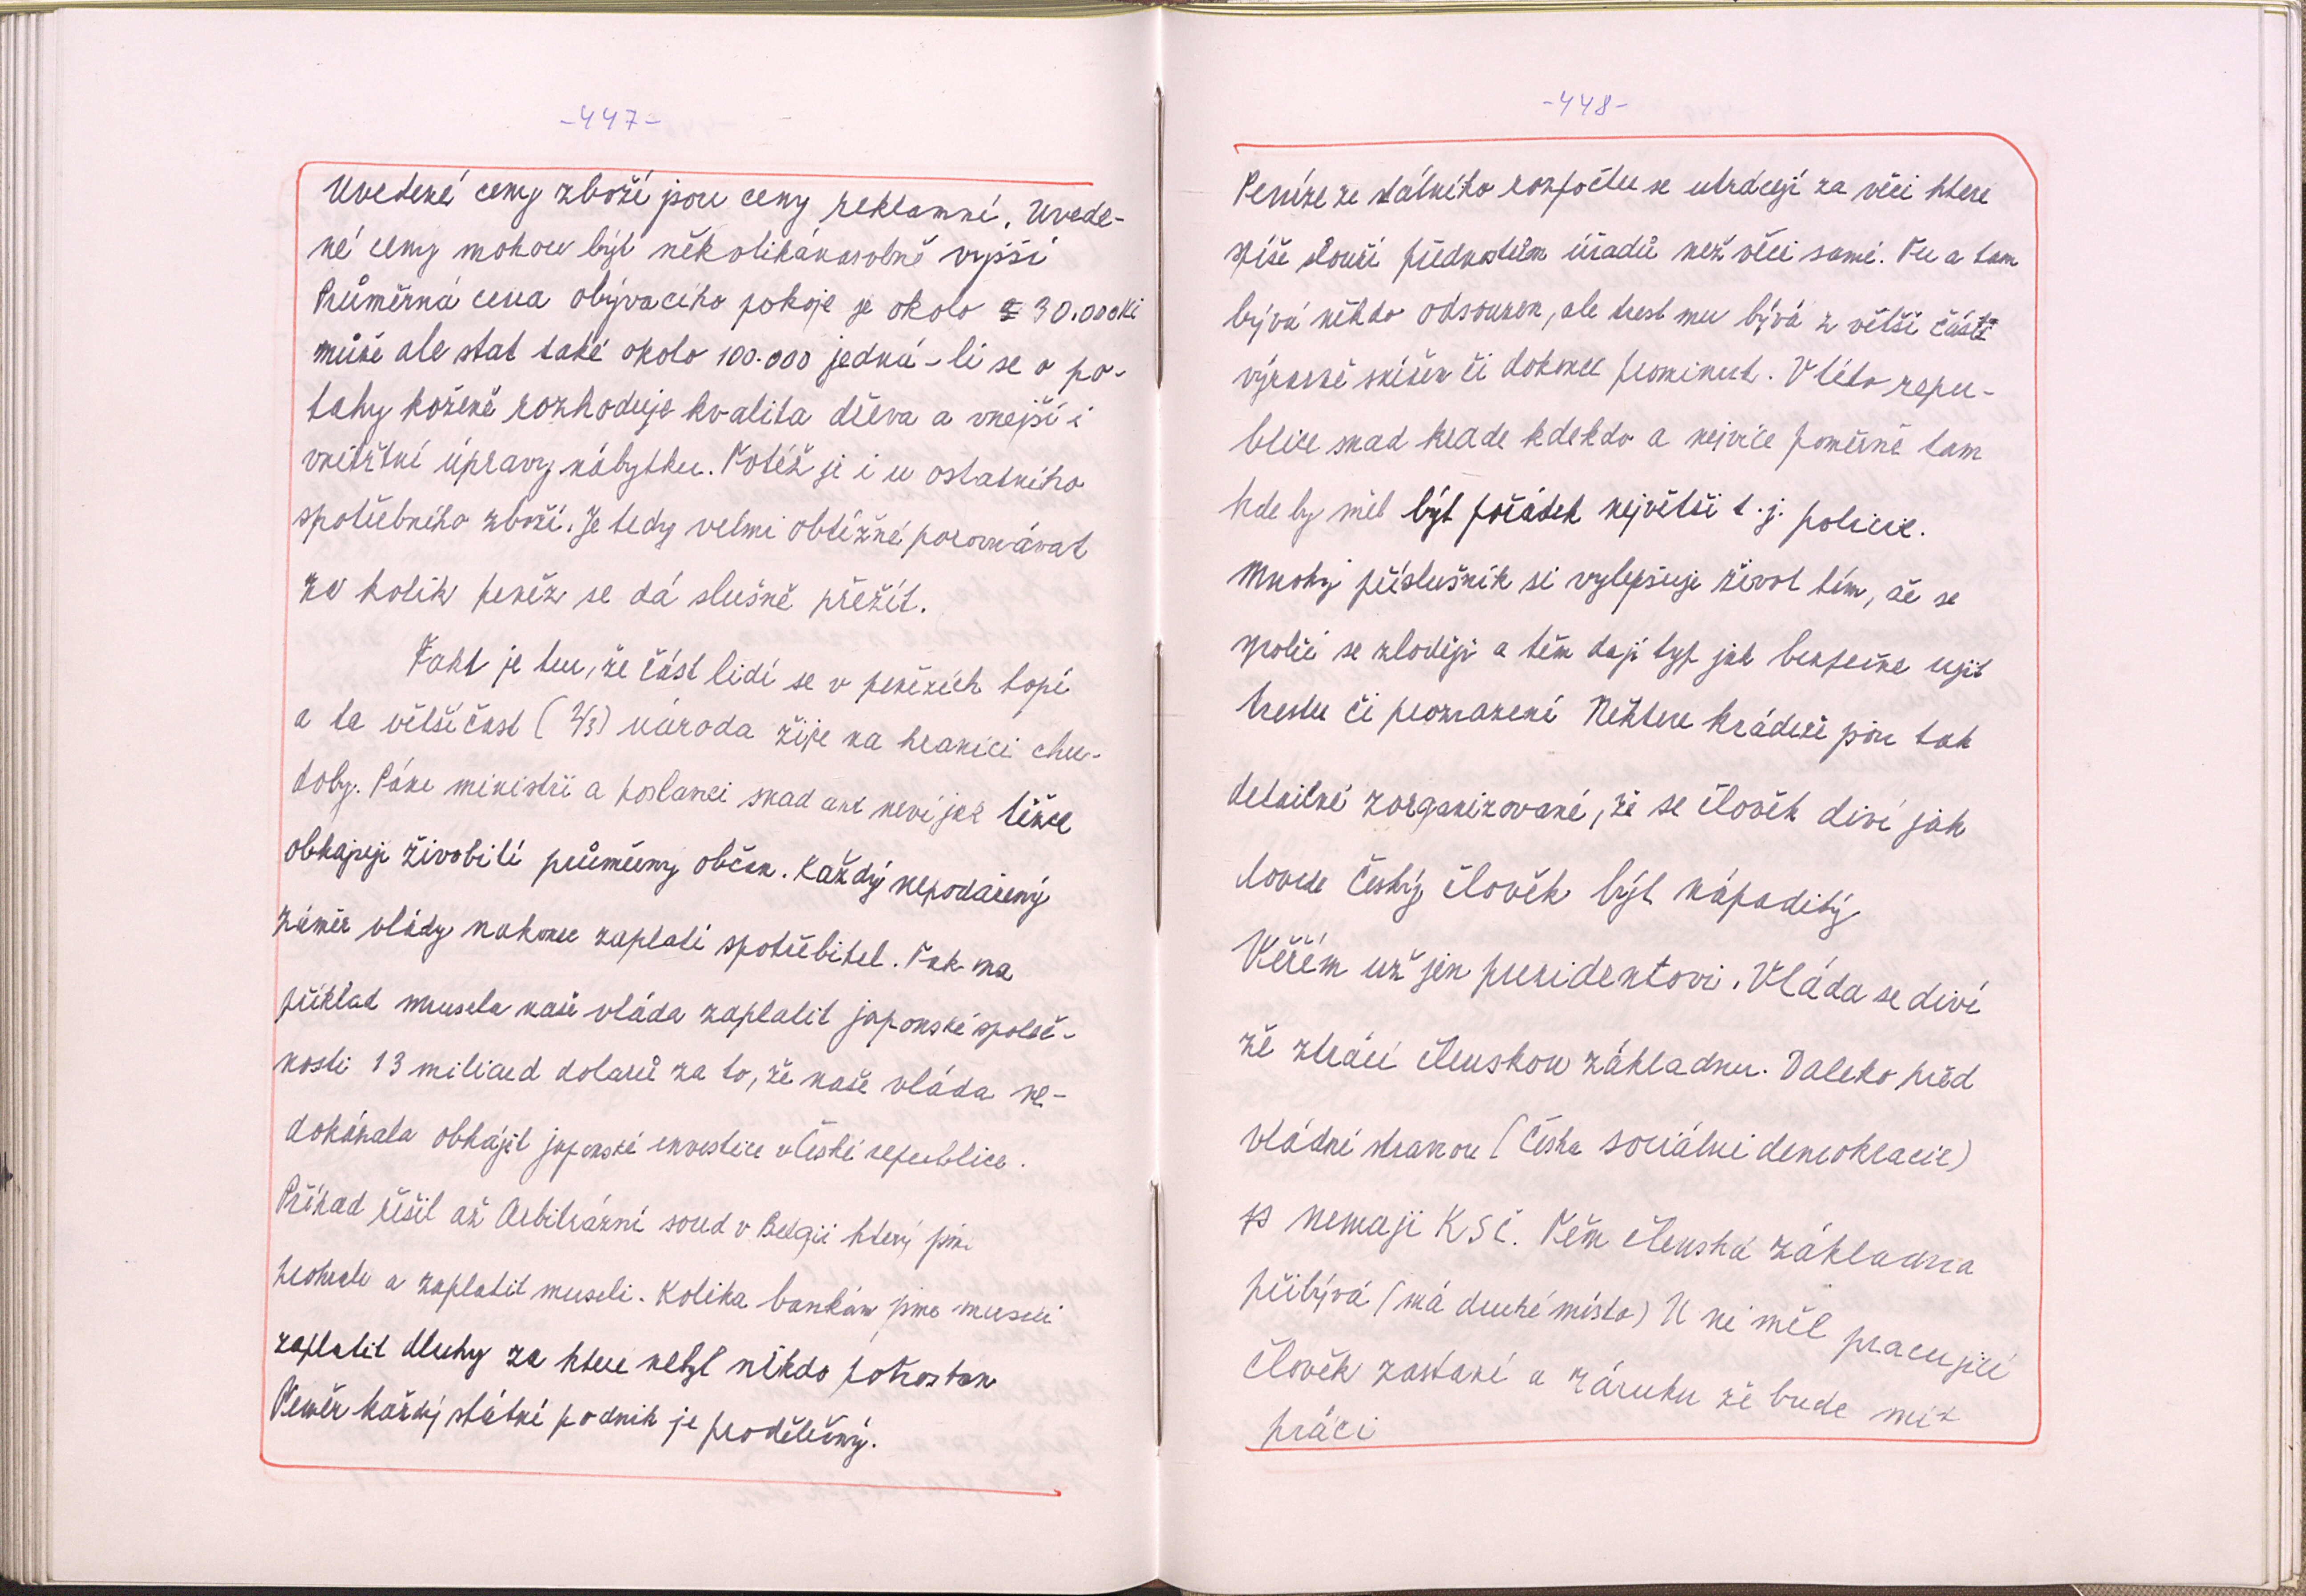 -447-
Uvedené ceny zboží jsou ceny reklamní. Uvede-
né ceny mohou být několikánásobně vyšší
Průměrná cena obývacího pokoje je okolo 30.000Kč
může ale stat také okolo 100.000 jedná-li se o po-
tahy kožené rozhoduje kvalita dřeva a vnejší i
vnitřtní úpravy nábytku. Totéž je i u ostatního
spotřebního zboží. Je tedy velmi obtížné porovnávat
za kolik peněz se dá slušně přežít.
Fakt je ten, že část lidí se v penězích topí
a ta větší část (2/3) národa žije na hranici chu-
doby. Páni ministři a poslanci snad ani neví jak těžce
obhajuje živobití průměrný občan. Každý nepodařený
záměr vlády nakonec zaplatí spotřebitel. Tak na
příklad musela naše vláda zaplatit japonské společ-
nosti 13 miliard dolarů za to, že naše vláda ne-
dokázala obhájit japonské investice v České republice.
Příkad řešil až Arbitrážní soud v Belgii který jsme
prohráli a zaplatit museli. Kolika bankám jsme museli
zaplatit dluhy za které nebyl nikdo potrestan
Téměř každý státní podnik je prodělečný.
-448-
Peníze ze státního rozpočtu se utrácejí za věci které
spíše slouží přednostům úřadů než věci samé. Tu a tam
bývá někdo odsouzen, ale trest mu bývá z větší části
výrazně snížen či dokonce prominut. V této repu-
blice snad krade kdekdo a nejvíce poměrně tam
kde by měl být pořádek největší t.j. policie.
Mnohý příslušník si vylepšuje život tím, že se
spolčí se zloději a těm dají typ jak bezpečne ujít
trestu či prozrazení Některé krádeže jsou tak
detailně zorganizované, že se člověk diví jak
dovede český člověk být nápaditý
Věřím už jen prezidentovi. Vláda se diví
že ztrácí členskou základnu. Daleko před
vládní stranou (Česka sociální demokracie)
nemají KSČ. Těm členská základna
přibývá (má druhé místo) U ní měl pracující
člověk zastání a záruku že bude mít
práci